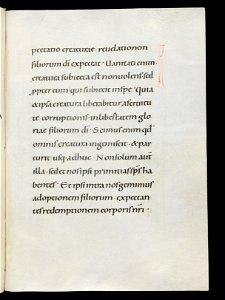 pectatio creaturae · reuelationem
filiorum di expectat · Uanitati enim
creatura subiecta est non uolens sed
ppter eum qui subiecit in spe · Quia
& ipsa creatura liberabitur a seruitu
te corruptionis · in libertatem glo
riae filiorum di · Scimus enim qd
omnis creatura ingemiscit · & par
turit usq; adhuc · Non solum aut
illa · sed et nos ipsi primitias sps ha
bentes · Et ipsi intra nos gemimus
adoptionem filiorum · expectan
tes redemptionem corporis nri ·